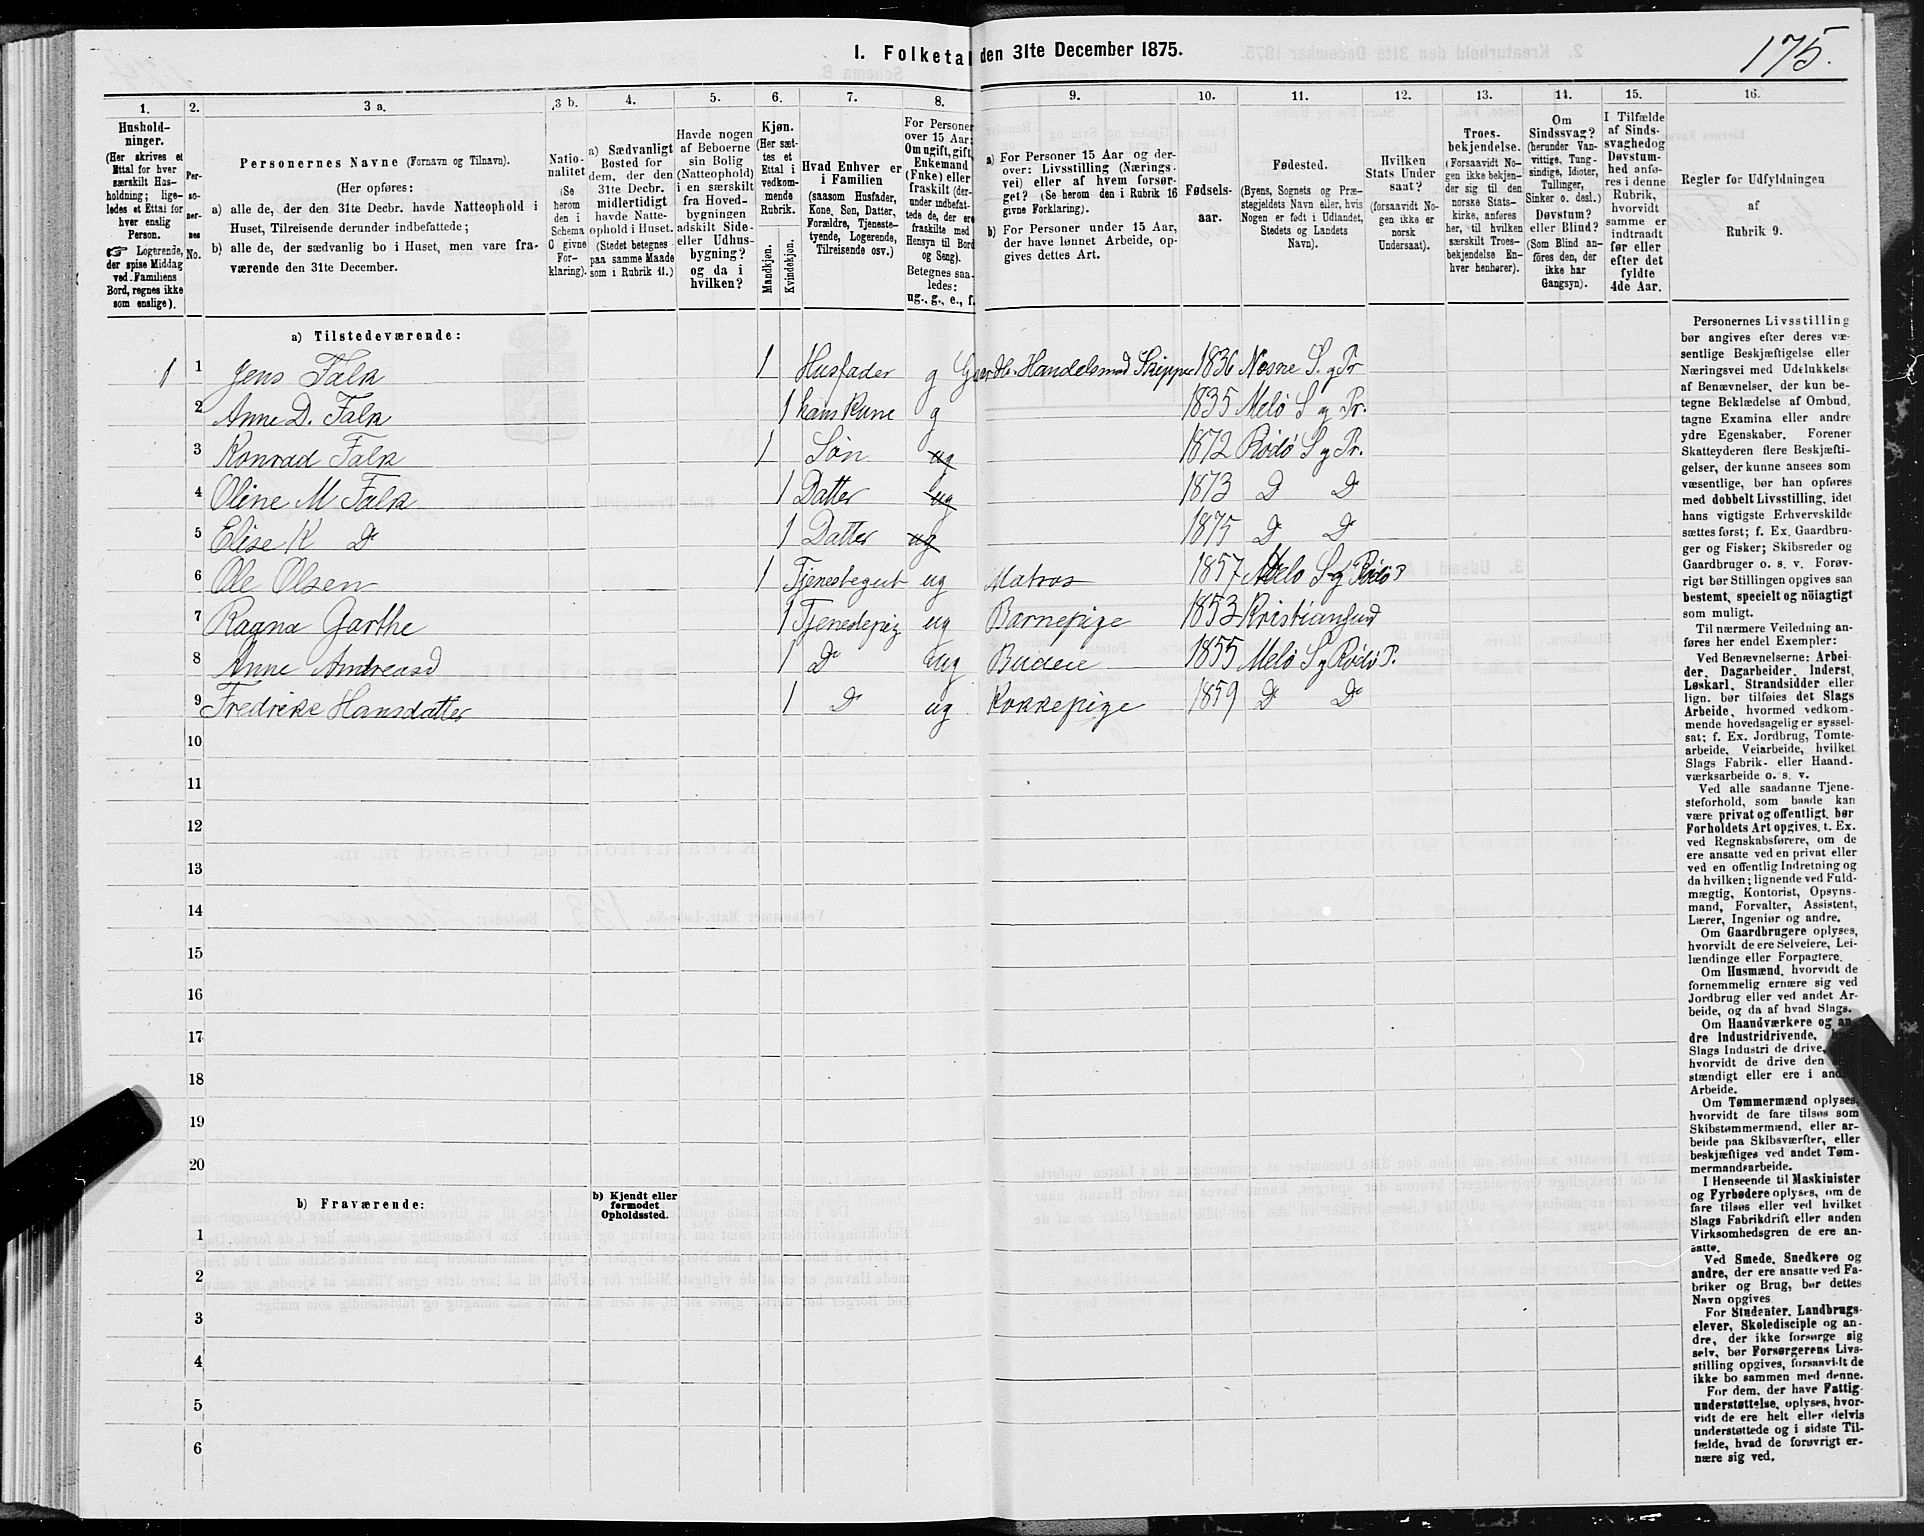 175.
I. Folketal den 31te December 1875.
1.
Husholdninger.
(Her skrives et Ettal for hver særskilt Husholdning; ligeledes et Ettal for hver enslig Person.
☞ Logerende, der spise Middag ved Familiens Bord, regnes ikke som enslige).
2.
Personernes No.
3 a.
Personernes Navne (Fornavn og Tilnavn).
(Her opføres:
a) alle de, der den 31te Decbr. havde Natteophold i Huset, Tilreisende derunder indbefattede;
b) alle de, der sædvanlig bo i Huset, men vare fraværende den 31te December.
3 b.
Nationalitet
(Se herom den i Schema C givne Forklaring).
4.
a) Sædvanligt Bosted for dem, der den 31te Decbr. midlertidigt havde Natteophold i Huset.
(Stedet betegnes paa samme Maade som i Rubrik 11.)
5.
Havde nogen af Beboerne sin Bolig (Natteophold) i en særskilt fra Hovedbygningen adskilt Side- eller Udhusbygning? og da i hvilken?
6.
Kjøn.
(Her sættes et Ettal i vedkommende Rubrik.
Mandkjøn.
Kvindekjøn.
7.
Hvad Enhver er i Familien
(saasom Husfader, Kone, Søn, Datter, Forældre, Tjenestetyende, Logerende, Tilreisende osv.)
8.
For Personer over 15 Aar: Om ugift, gift, Enkemand (Enke) eller fraskilt (derunder indbefattede de, der ere fraskilte med Hensyn til Bord og Seng).
Betegnes saaledes: ug., g., e., f.
9.
a) For Personer 15 Aar og derover: Livsstilling (Næringsvei) eller af hvem forsørget? (Se herom den i Rubrik 16 givne Forklaring).
b) For Personer under 15 Aar, der have lønnet Arbeide, opgives dettes Art.
10.
Fødselsaar.
11.
Fødested.
(Byens, Sognets og Præstegjeldets Navn eller, hvis Nogen er født i Udlandet, Stedets og Landets Navn).
12.
Hvilken Stats Undersaat?
(forsaavidt Nogen ikke er norsk Undersaat).
13.
Troesbekjendelse.
(Forsaavidt Nogen ikke bekjender sig til den norske Statskirke, anføres her, til hvilken særskilt Troesbekjendelse Enhver henhører).
14.
Om Sindssvag? (herunder Vanvittige, Tungsindige, Idioter, Tullinger, Sinker o. desl.) Døvstum? eller Blind? (Som Blind anføres den, der ikke har Gangsyn).
15.
I Tilfælde af Sindssvaghed og Døvstumhed anføres i denne Rubrik, hvorvidt samme er indtraadt før eller efter det fyldte 4de Aar.
16.
Regler for Udfyldningen af Rubrik 9.
a) Tilstedeværende:
1 1 Jens Falk 1 Husfader g Gaardb. Handelsmd Skipper 1836 Næsne S. g Pr
2 Anne D. Falk 1 hans Kone g 1835 Melø S g Pr.
3 Konrad Falk 1 Søn ug 1872 Rødø S g Pr.
4 Oline M Falk 1 Datter ug 1873 Do Do
5 Elise K Do 1 Datter ug 1875 Do Do
6 Ole Olsen 1 Tjenestegut ug Matros 1857 Melø S g Rødø P
7 Ragna Garthe 1 Tjenestepig ug Barnepige 1853 Kristiansund
8 Anne Andreasd 1 Do ug Budeie 1855 Melø S g Rødø P.
9 Fredrike Hansdatter 1 Do ug Kokkepige 1859 Do Do
10
11
12
13
14
15
16
17
18
19
20
b) Fraværende:
b) Kjendt eller formodet Opholdssted.
1
2
3
4
5
6
Personernes Livsstilling
bør angives efter deres væ-
sentlige Beskjæftigelse eller
Næringsvei med Udelukkelse
af Benævnelser, der kun be-
tegne Beklædelse af Ombud,
tagne Examina eller andre
ydre Egenskaber. Forener
Skatteyderen flere Beskjæfti-
gelser, der kunne ansees som
væsentlige, bør han opføres
med dobbelt Livsstilling, idet
hans vigtigste Erhvervskilde
sættes først; f. Ex. Gaardbru-
ger og Fisker; Skibsreder og
Gaardbruger o. s. v. Forøv-
rigt bør Stillingen opgives saa
bestemt, specielt og nøiagtigt
som muligt.
Til nærmere Veiledning an-
føres her endel Exempler:
Ved Benævnelserne: Arbei-
der, Dagarbeider, Inderst,
Løskarl, Strandsidder eller
lign. bør tilføies det Slags
Arbeide, hvormed vedkom-
mende hovedsagelig er syssel-
sat; f. Ex. Jordbrug, Tomte-
arbeide, Veiarbeide, hvilket
Slags Fabrik- eller Haand-
værksarbeide o. s. v.
Ved alle saadanne Tjene-
steforhold, som baade kan
være privat og offentligt, bør
Forholdets Art opgives, t. Ex.
ved Regnskabsførere, om de
ere ansatte ved en privat eller
ved en offentlig Indretning og
da hvilken; lignende ved Fuld-
mægtig, Kontorist, Opsyns-
mand, Forvalter, Assistent,
Lærer, Ingeniør og andre.
Om Gaardbrugere oplyses,
hvorvidt de ere Selveiere, Lei-
lændinge eller Forpagtere.
Om Husmænd, hvorvidt de
fornemmelig ernære sig ved
Jordbrug eller ved andet Ar-
beide, og da af hvad Slags.
Om Haandværkere og an-
dre Industridrivende,
Slags Industri de drive,
hvorvidt de drive den
stændigt eller ere i
Arbeide.
Om Tømmermænd oplyses,
hvorvidt de fare tilsøs som
Skibstømmermænd, eller ar-
beide paa Skibsværfter, eller
beskjæftiges ved andet Tøm-
mermandsarbeide.
I Henseende til Maskinister
og Fyrbødere oplyses, om de
fare tilsøs eller ved hvilket
Slags Fabrikdrift eller anden
Virksomhedsgren de ere an-
satte.
Ved Smede, Snedkere og
andre, der ere ansatte ved Fa-
briker og Brug, bør dettes
Navn opgives
For Studenter, Landbrugs-
elever, Skoledisciple og an-
dre, der ikke forsørge sig
selv, bør Forsørgerens Livs-
stilling opgives, forsaavidt de
ikke bo sammen med denne.
For dem, der have Fattig-
understøttelse, oplyses, hvor-
vidt de ere helt eller delvis
understøttede og i sidste Til-
fælde, hvad de forøvrigt er-
nære sig ved.